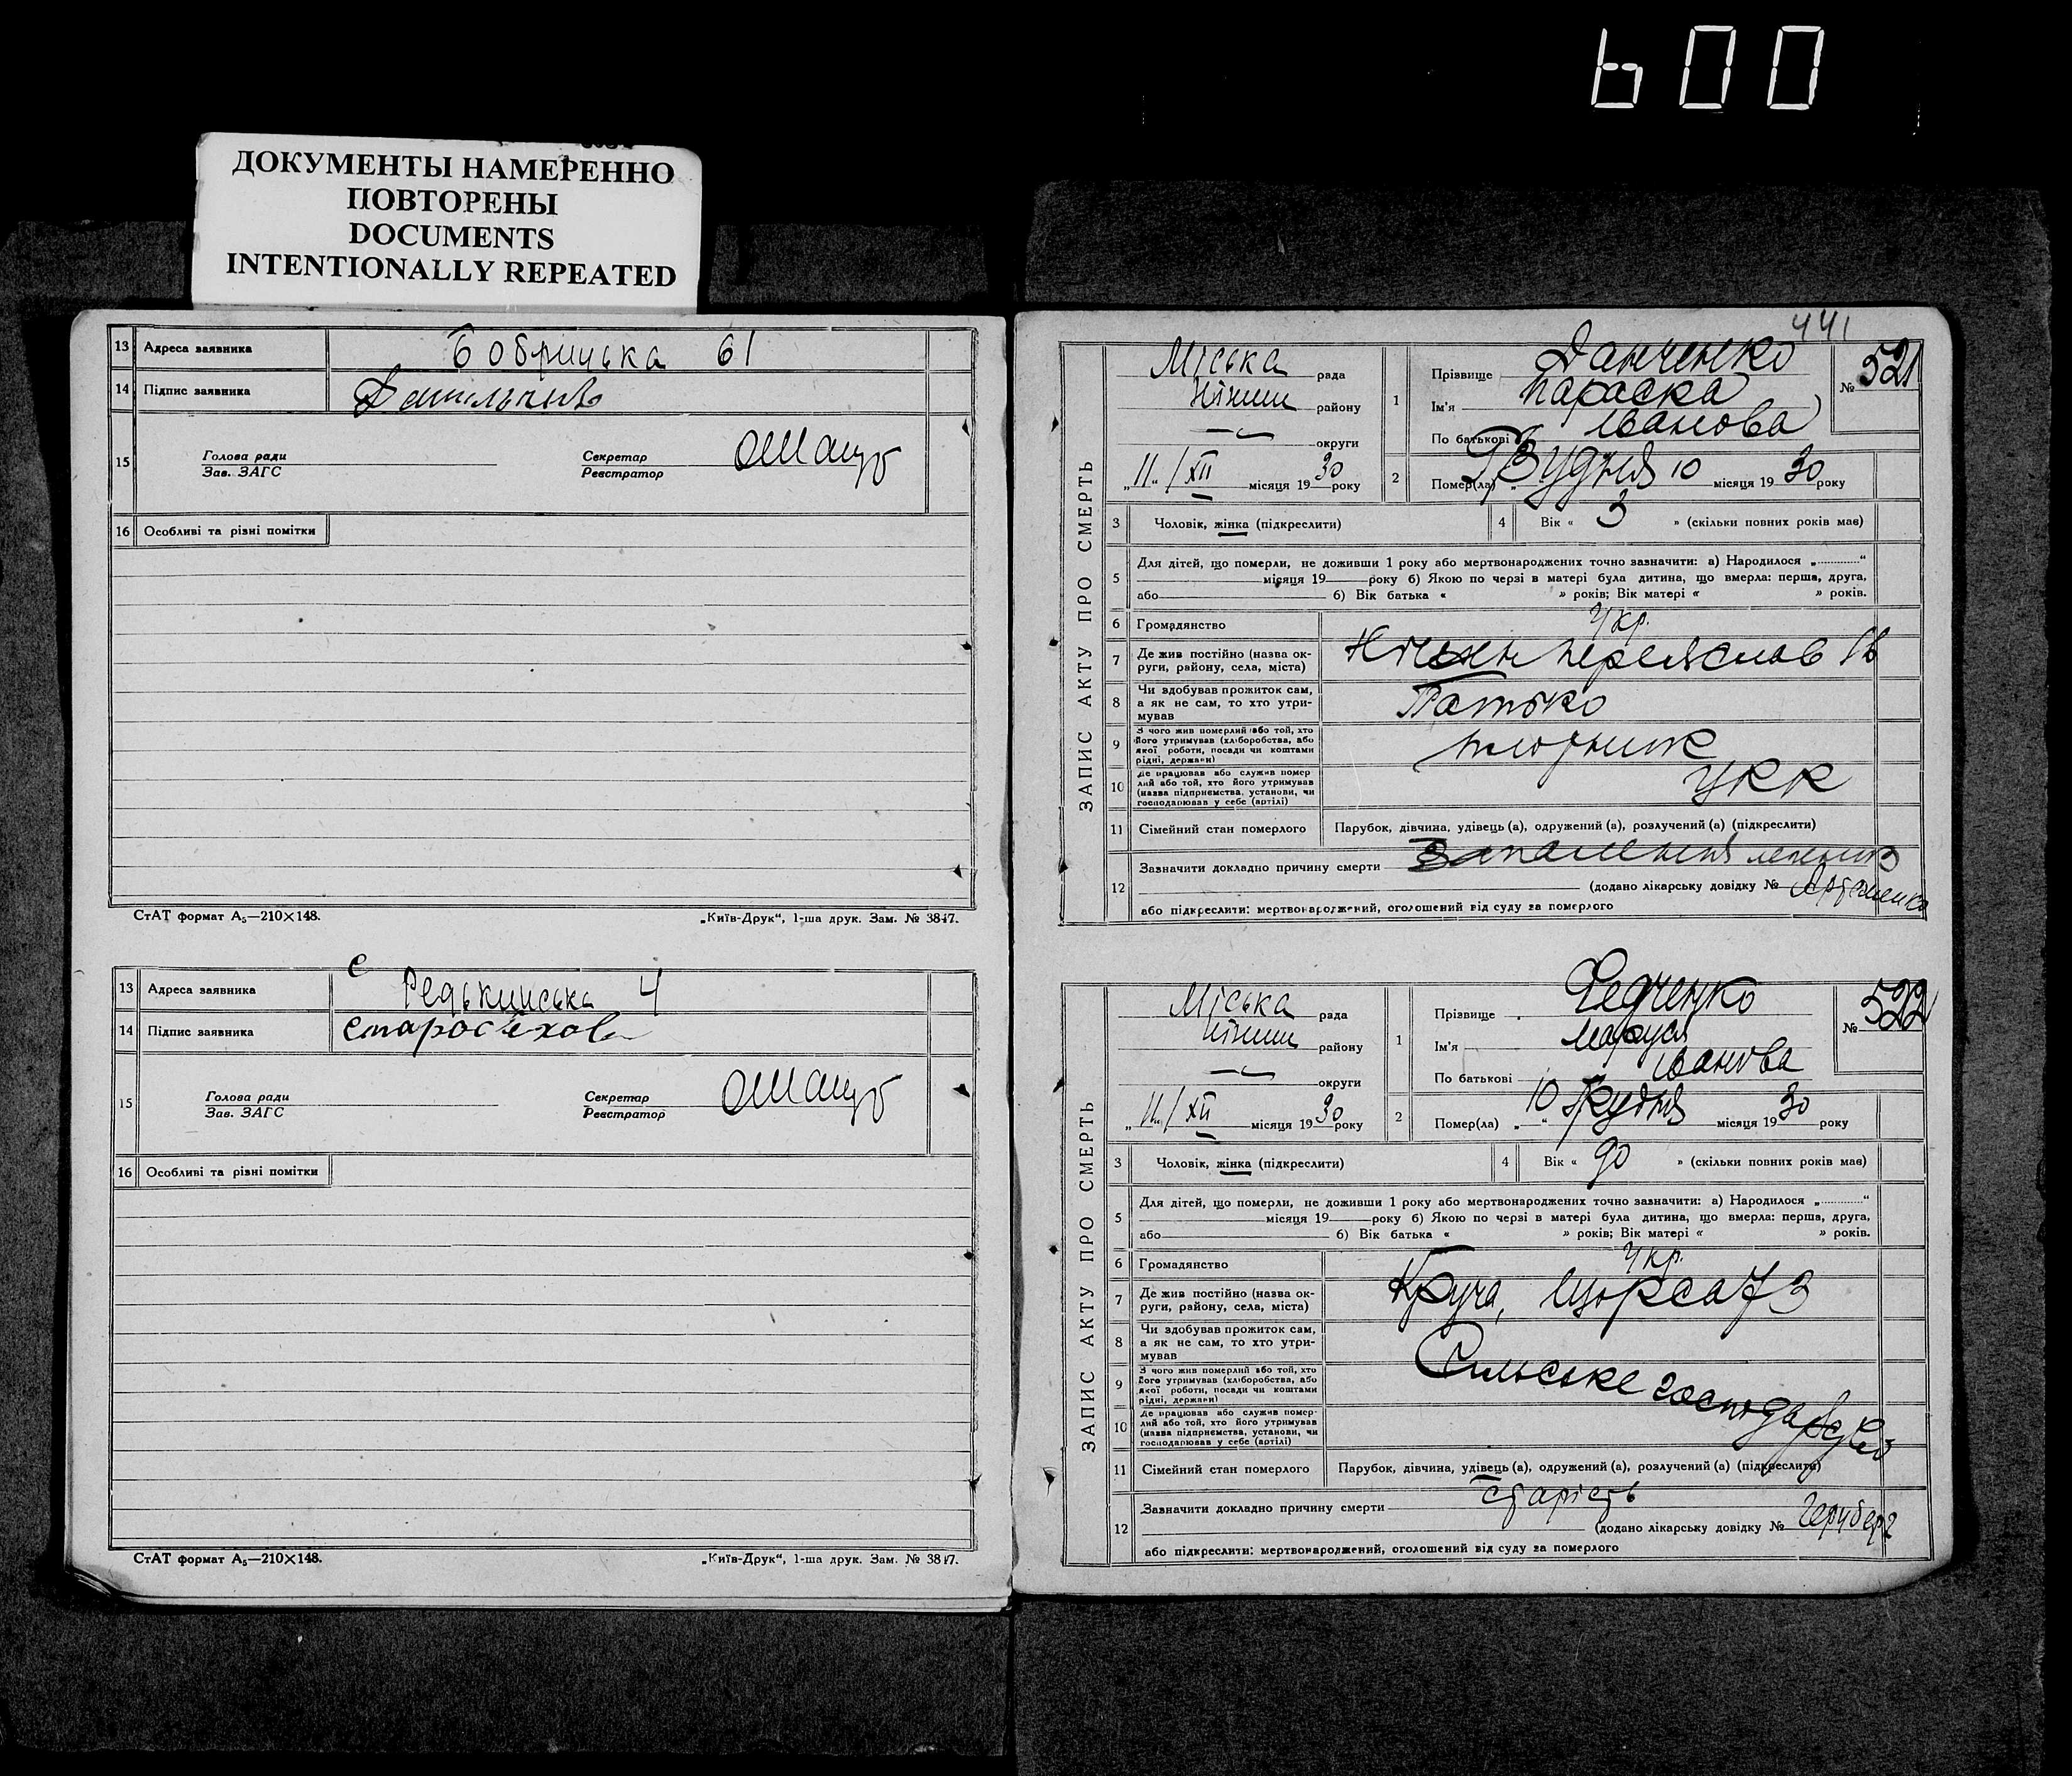 600
ДОКУМЕНТЫ НАМЕРЕННО
ПОВТОРЕНЫ
DOCUMENTS
INTENTIONALLY REPEATED
13 Адреса заявника Бобрицька 61
14 Підпис заявника
15 Голова ради Секретар
Зав. ЗАГС Реєстратор
16 Особливі та різні помітки
СтАТ формат А₅—210×148. „Київ-Друк“, 1-ша друк. Зам. № 3847.
с
13 Адреса заявника Редькинська 4
14 Підпис заявника
15 Голова ради Секретар
Зав. ЗАГС Реєстратор
16 Особливі та різні помітки
СтАТ формат А₅—210×148. „Київ-Друк“, 1-ша друк. Зам. № 3847.
441
ЗАПИС АКТУ ПРО СМЕРТЬ
Міська рада
Ніжин району
округи
„11“ / XII місяця 1930 року
1 Прізвище Данченко № 521
Ім'я Параска
По батькові Іванова
2 Помер(ла) Грудня 10 місяця 1930 року
3 Чоловік, жінка (підкреслити) 4 Вік « 3 » (скільки повних років має)
5 Для дітей, що померли, не доживши 1 року або мертвонароджених точно зазначити: а) Народилося „ “
місяця 19 року б) Якою по черзі в матері була дитина, що вмерла: перша, друга,
або б) Вік батька « » років; Вік матері « » років.
6 Громадянство Укр.
7 Де жив постійно (назва округи, району, села, міста) Ніжин Переяслав
8 Чи здобував прожиток сам, а як не сам, то хто утримував Батько
9 З чого жив померлий або той, хто його утримував (хліборобства, або якої роботи, посади чи коштами рідні, держави)
10 Де працював або служив померлий або той, хто його утримував (назва підприємства, установи, чи господарював у себе (артілі) УКК
11 Сімейний стан померлого Парубок, дівчина, удівець (а), одружений (а), розлучений (а) (підкреслити)
12 Зазначити докладно причину смерти Запалення легенів
(додано лікарську довідку №
або підкреслити: мертвонароджений, оголошений від суду за померлого
ЗАПИС АКТУ ПРО СМЕРТЬ
Міська рада
Ніжин району
округи
„11“ / XII місяця 1930 року
1 Прізвище Федченко № 522
Ім'я Маруся
По батькові Іванова
2 Помер(ла) „10“ Грудня місяця 1930 року
3 Чоловік, жінка (підкреслити) 4 Вік « 90 » (скільки повних років має)
5 Для дітей, що померли, не доживши 1 року або мертвонароджених точно зазначити: а) Народилося „ “
місяця 19 року б) Якою по черзі в матері була дитина, що вмерла: перша, друга,
або б) Вік батька « » років; Вік матері « » років.
6 Громадянство Укр.
7 Де жив постійно (назва округи, району, села, міста) Круча, Щорса 73
8 Чи здобував прожиток сам, а як не сам, то хто утримував
9 З чого жив померлий або той, хто його утримував (хліборобства, або якої роботи, посади чи коштами рідні, держави) Сильське господарство
10 Де працював або служив померлий або той, хто його утримував (назва підприємства, установи, чи господарював у себе (артілі)
11 Сімейний стан померлого Парубок, дівчина, удівець (а), одружений (а), розлучений (а) (підкреслити)
12 Зазначити докладно причину смерти старість
(додано лікарську довідку №
або підкреслити: мертвонароджений, оголошений від суду за померлого